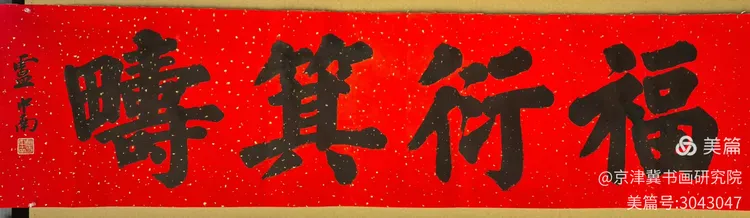 福衍箕疇
盧中南
美篇
@京津冀书画研究院
美篇号:3043047